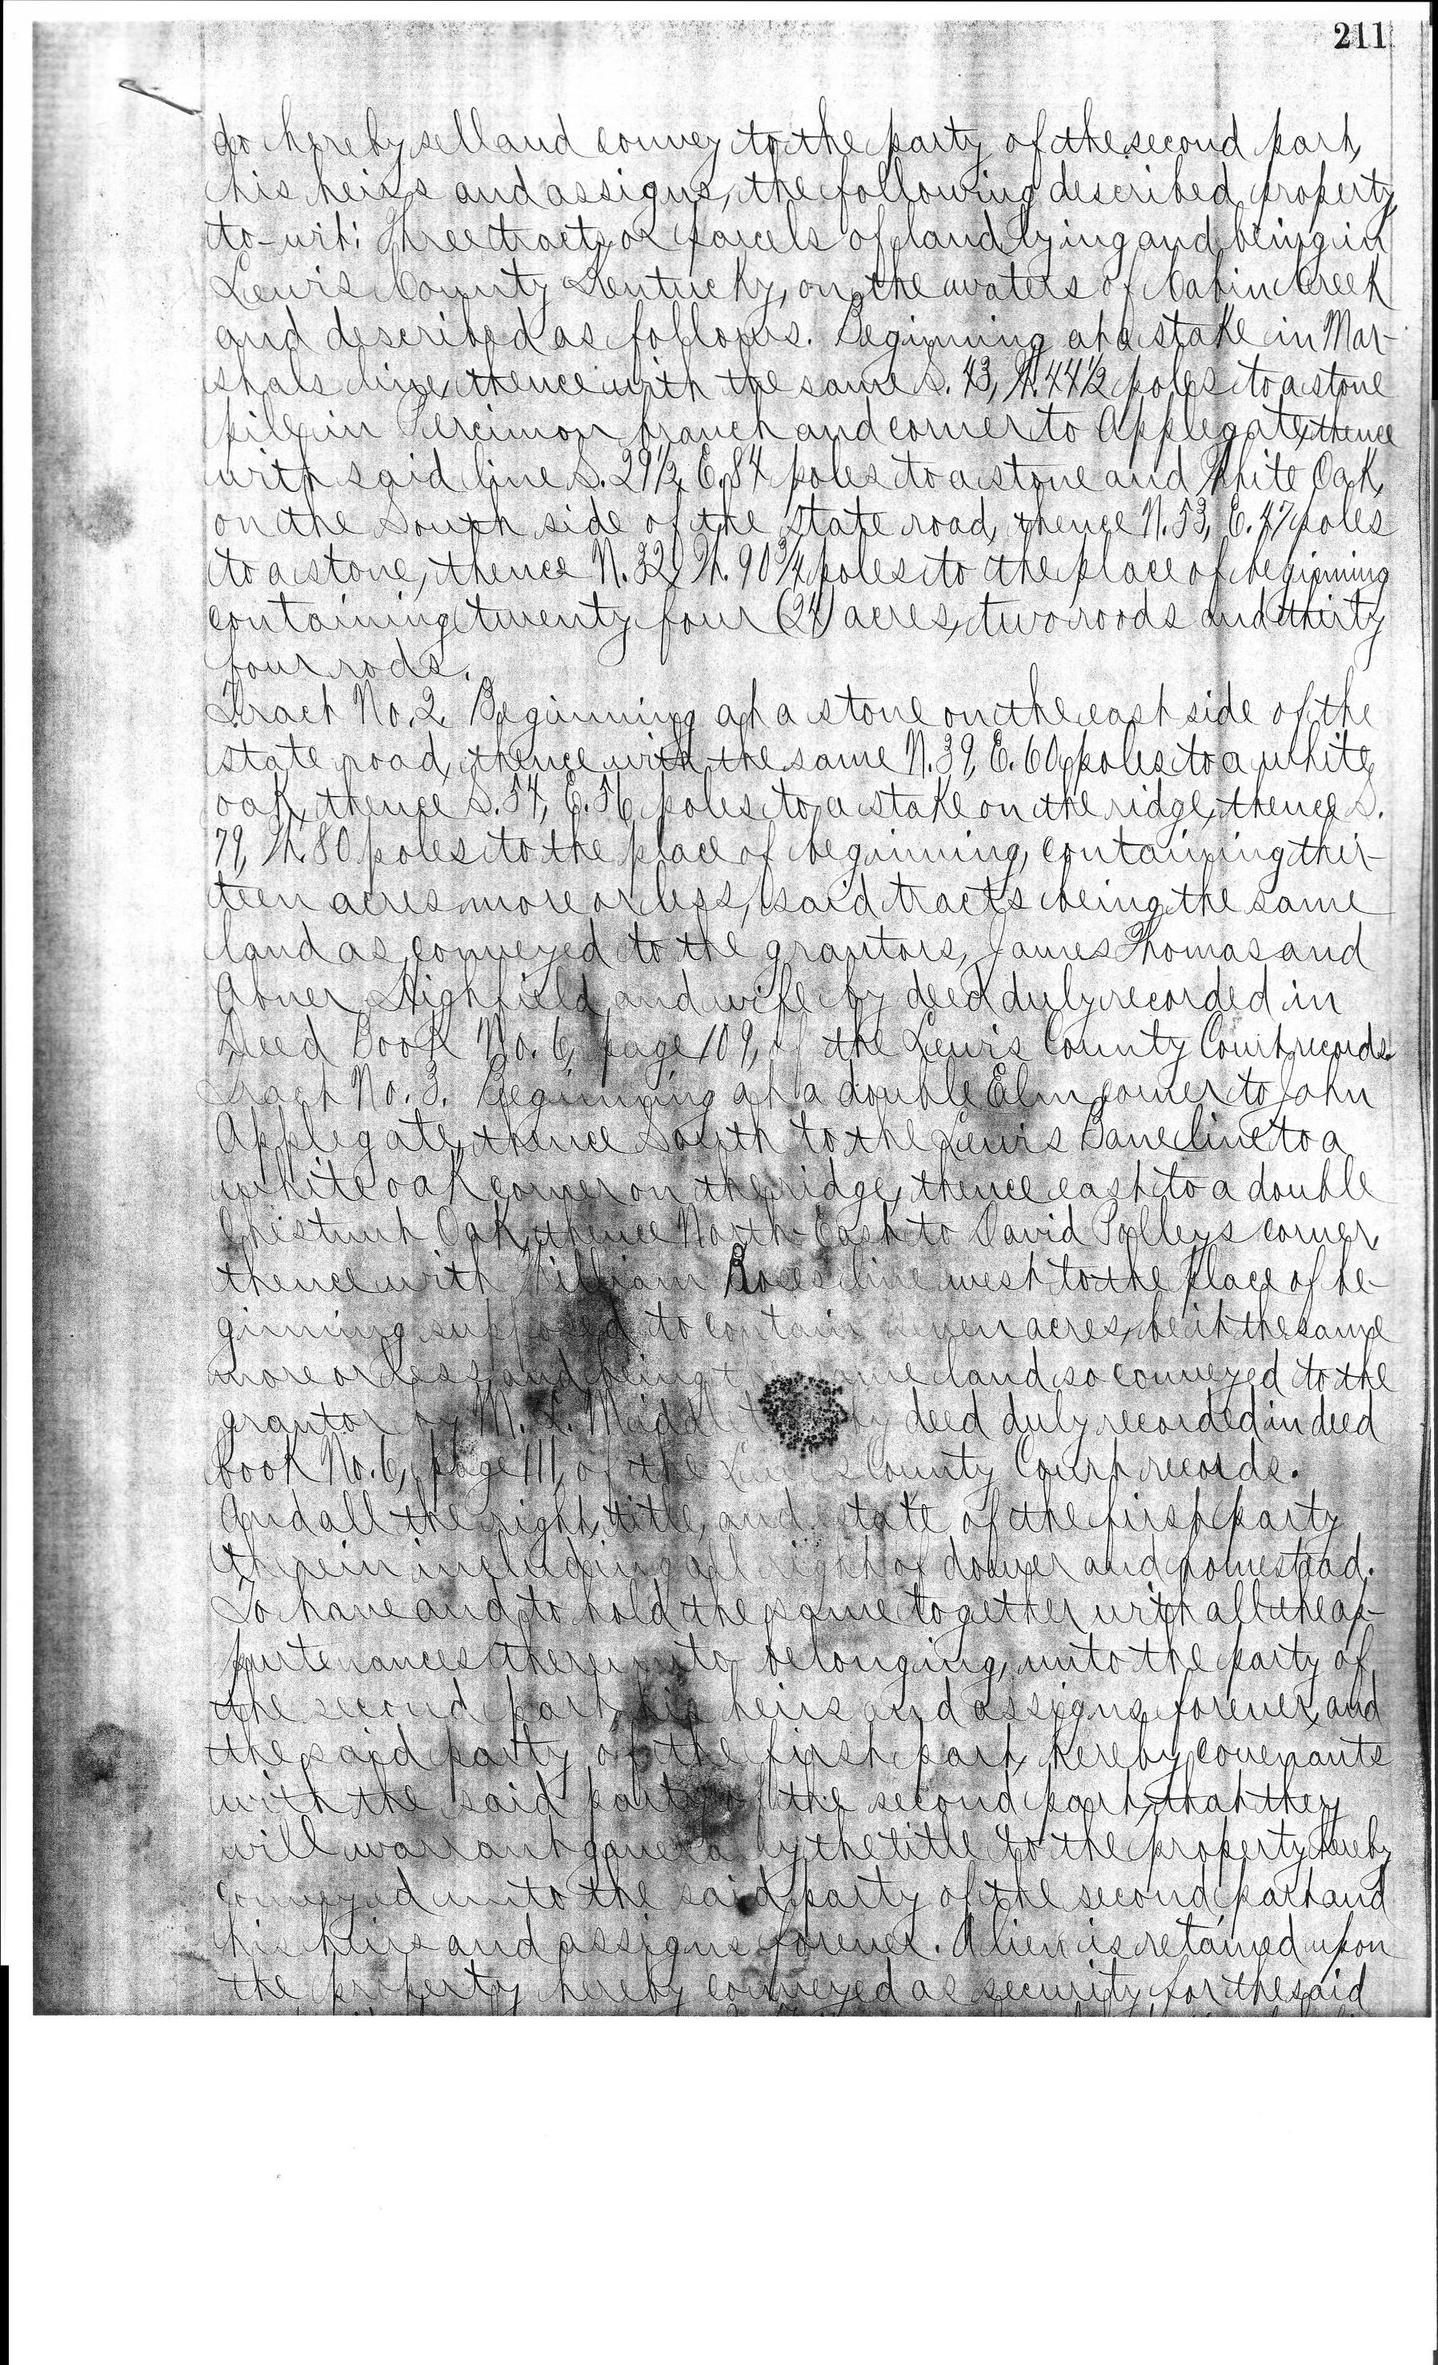 211
do hereby sell and convey to the party of the second part,
his heirs and assigns, the following described property,
to-wit: Three tracts or parcels of land lying and being in
Lewis County Kentucky, on the waters of Cabin Creek
and described as follows. Beginning at a stake in Mar-
shals line, thence with the same S. 43, W. 44 1/2 poles to a stone
pile in Percimon branch and corner to Applegate, thence
with said line S. 29 1/2, E. 84 poles to a stone and White Oak,
on the South side of the state road, thence N. 53, E. 47 poles
to a stone, thence N. 32, W. 90 3/4 poles to the place of beginning
containing twenty four (24) acres, two roods and thirty
four rods.
Tract No. 2. Beginning at a stone on the east side of the
state road, thence with the same N. 39, E. 60 poles to a white
oak, thence S. 54, E. 56 poles to a stake on the ridge, thence S.
79, W. 80 poles to the place of beginning, containing thir-
teen acres more or less, said tracts being the same
land as conveyed to the grantors, James Thomas and
Abner Highfield and wife by deed duly recorded in
Deed Book No. 6, page 109, of the Lewis County Court records.
Tract No. 3. Beginning at a double Elm corner to John
Applegate, thence South to the Lewis Bane line to a
white oak corner on the ridge, thence east to a double
Chestnut Oak, thence North-East to David Polleys corner,
thence with William Roses line west to the place of be-
ginning supposed to contain acres, be it the same
more or less and being land so conveyed to the
grantor by M. by deed duly recorded in deed
book No. 6, page 111, of the Lewis County Court records.
And all the right, title, and estate of the first party
therein including all right of dower and homestead.
To have and to hold the same together with all the ap-
purtenances thereunto belonging, unto the party of
the second part, his heirs and assigns forever, and
the said party of the first part, hereby covenants
with the said party of the second part, that they
will warrant generally the title to the property hereby
conveyed unto the said party of the second part and
his heirs and assigns forever. A lien is retained upon
the property hereby conveyed as security for the said